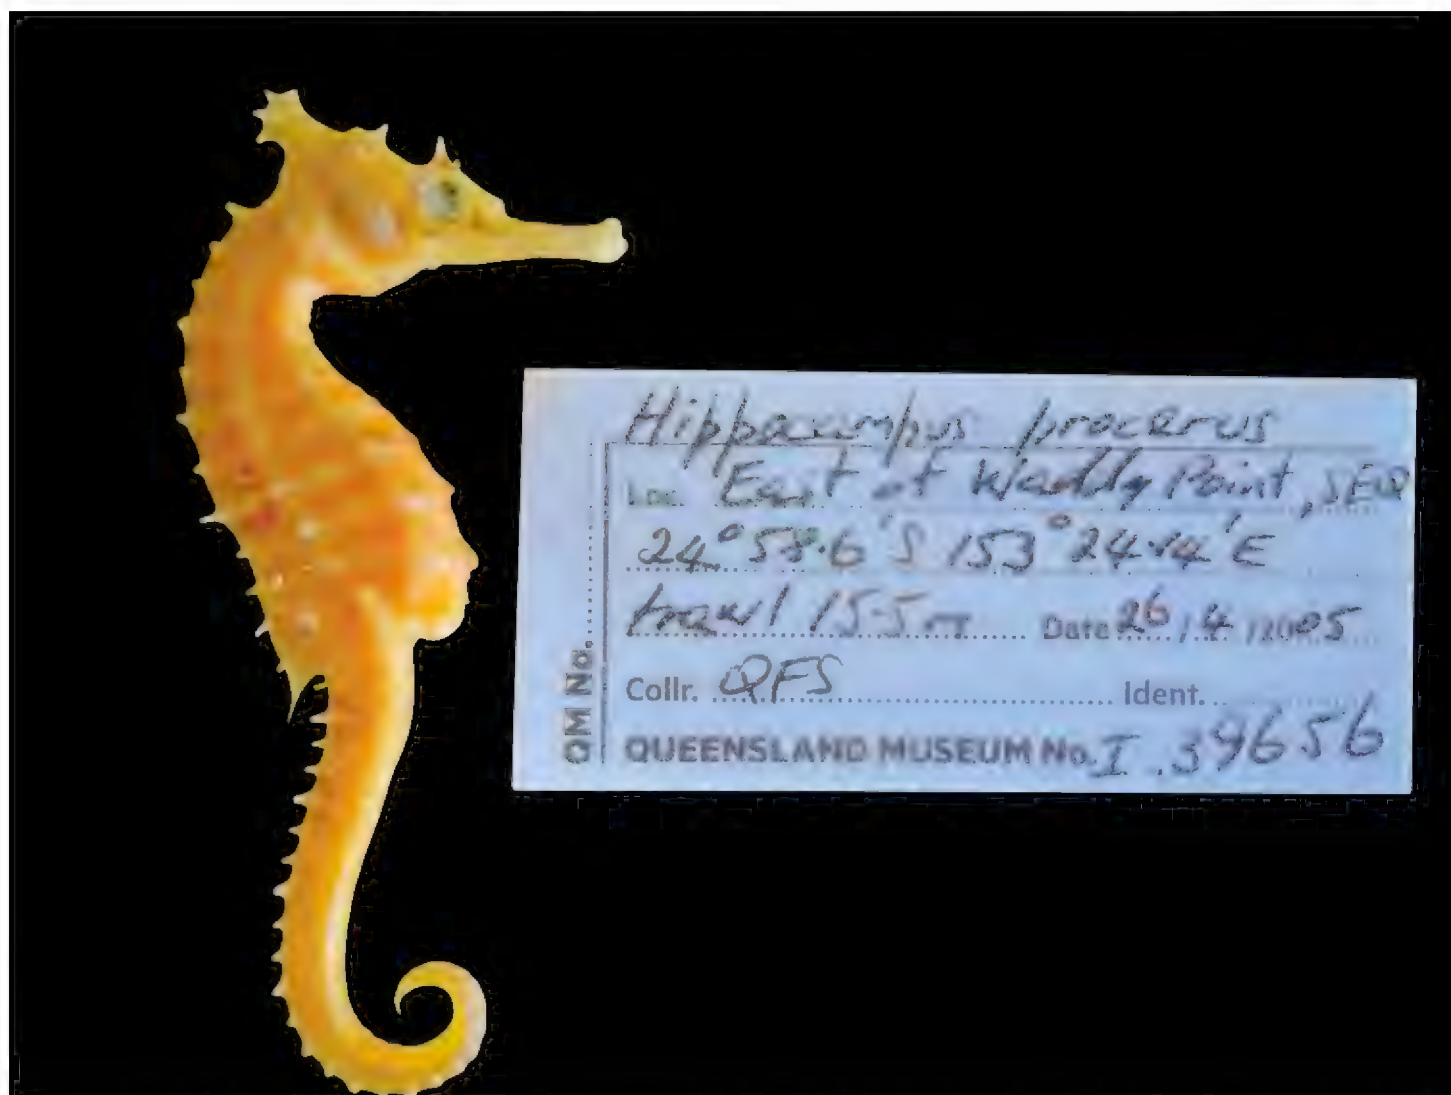 Hippocampus procerus
Loc. East of Waddy Point, SEQ
24° 58.6' S 153° 24.14' E
trawl 155 m Date 26/4/2005
Collr. QFS Ident.
QUEENSLAND MUSEUM No. I.39656
QM No.